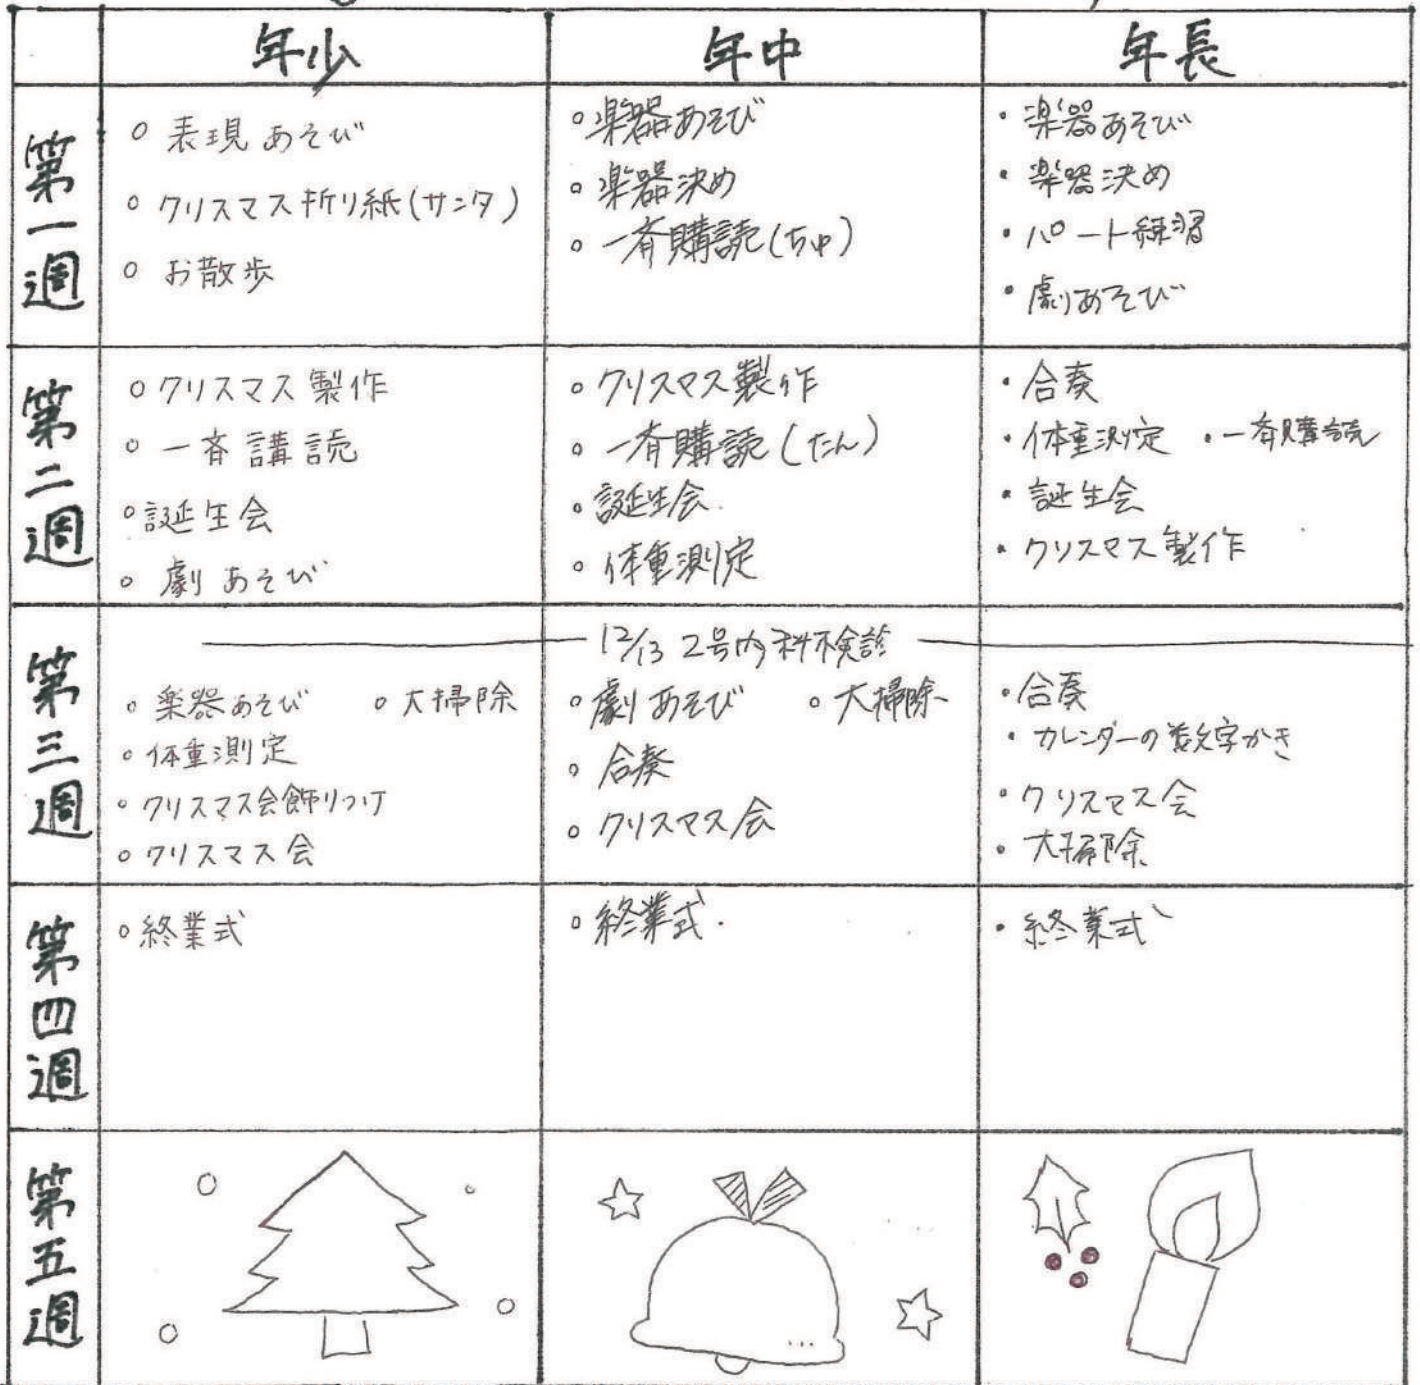 年少 年中 年長
第一週
○ 表現あそび
○ クリスマス折り紙(サンタ)
○ お散歩
○ 楽器あそび
○ 楽器決め
○ 一斉購読(ちゅ)
・楽器あそび
・楽器決め
・パート練習
・劇あそび
第二週
○ クリスマス製作
○ 一斉講読
○ 誕生会
○ 劇あそび
○ クリスマス製作
○ 一斉購読(たん)
○ 誕生会
○ 体重測定
・合奏
・体重測定 ・一斉購読
・誕生会
・クリスマス製作
第三週
12/13 2号内科検診
○ 楽器あそび ○ 大掃除
○ 体重測定
○ クリスマス会飾りつけ
○ クリスマス会
○ 劇あそび ○ 大掃除
○ 合奏
○ クリスマス会
・合奏
・カレンダーの数字かき
・クリスマス会
・大掃除
第四週
○ 終業式
○ 終業式.
・終業式
第五週